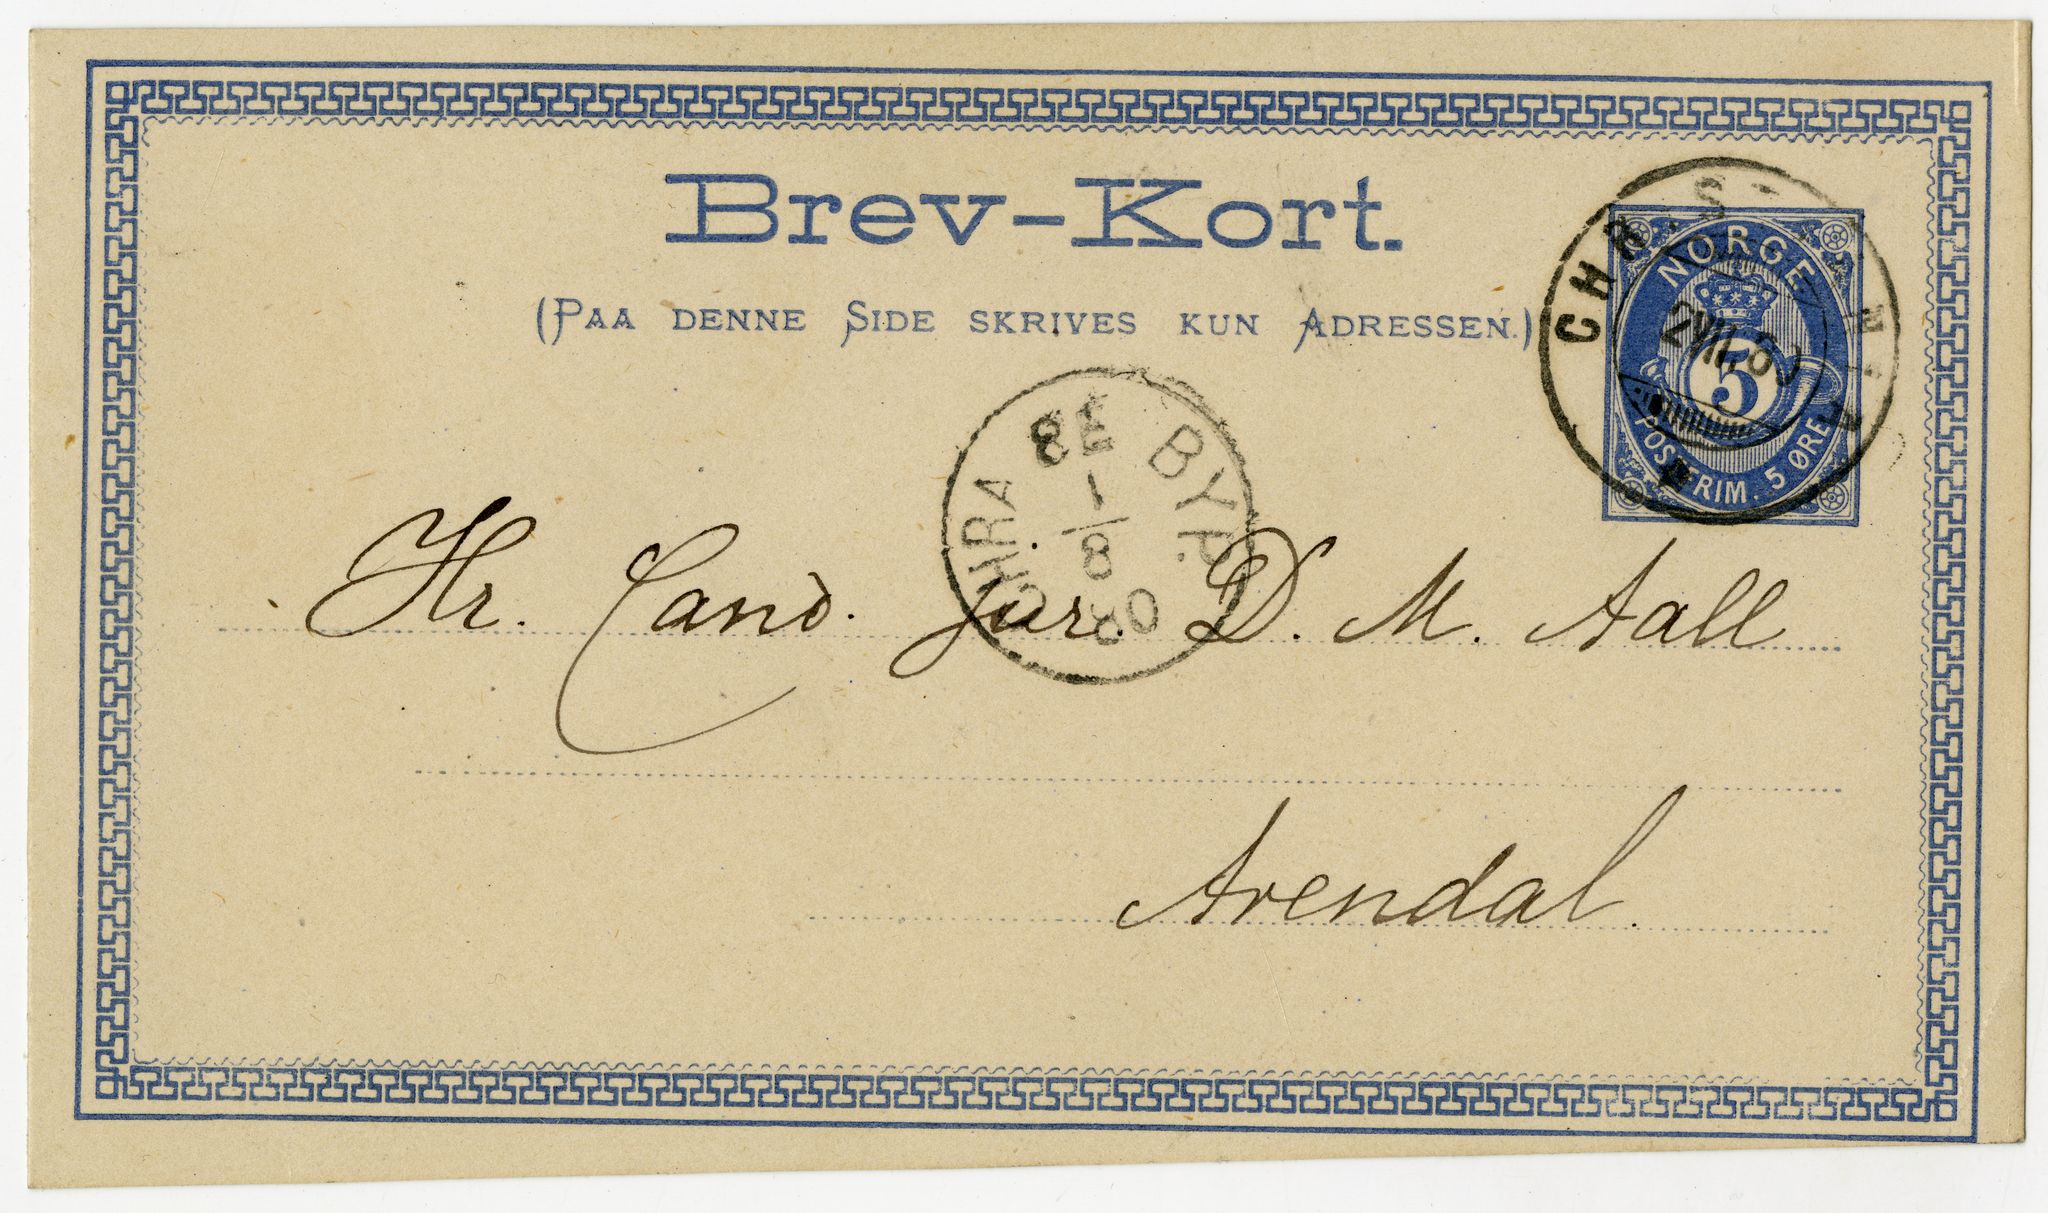 Brev-Kort.
(PAA DENNE SIDE SKRIVES KUN ADRESSEN.)
NORGE
5
POSTFRIM. 5 ØRE
CHRA BYP.
8E
1
8
80
Hr. Cand. jur. D. M. Aall
Arendal.